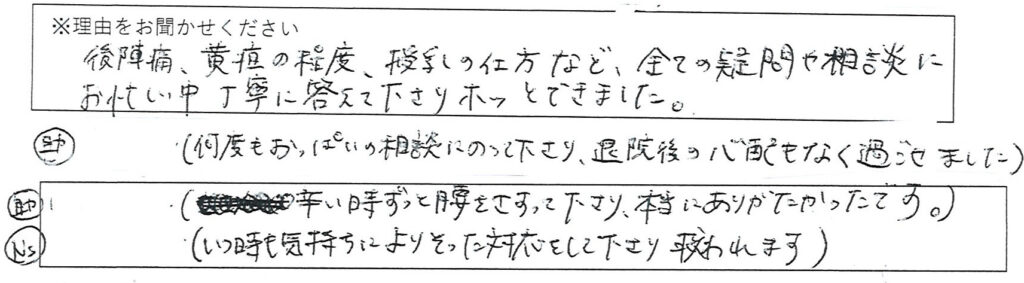 ※理由をお聞かせください
後陣痛、黄疸の程度、授乳の仕方など、全ての疑問や相談に
お忙しい中丁寧に答えて下さりホッとできました。
助 (何度もおっぱいの相談にのって下さり、退院後の心配もなく過ごせました)
助 (辛い時ずっと腰をさすって下さり、本当にありがたかったです。)
Ns (いつ時も気持ちによりそった対応をして下さり救われます)